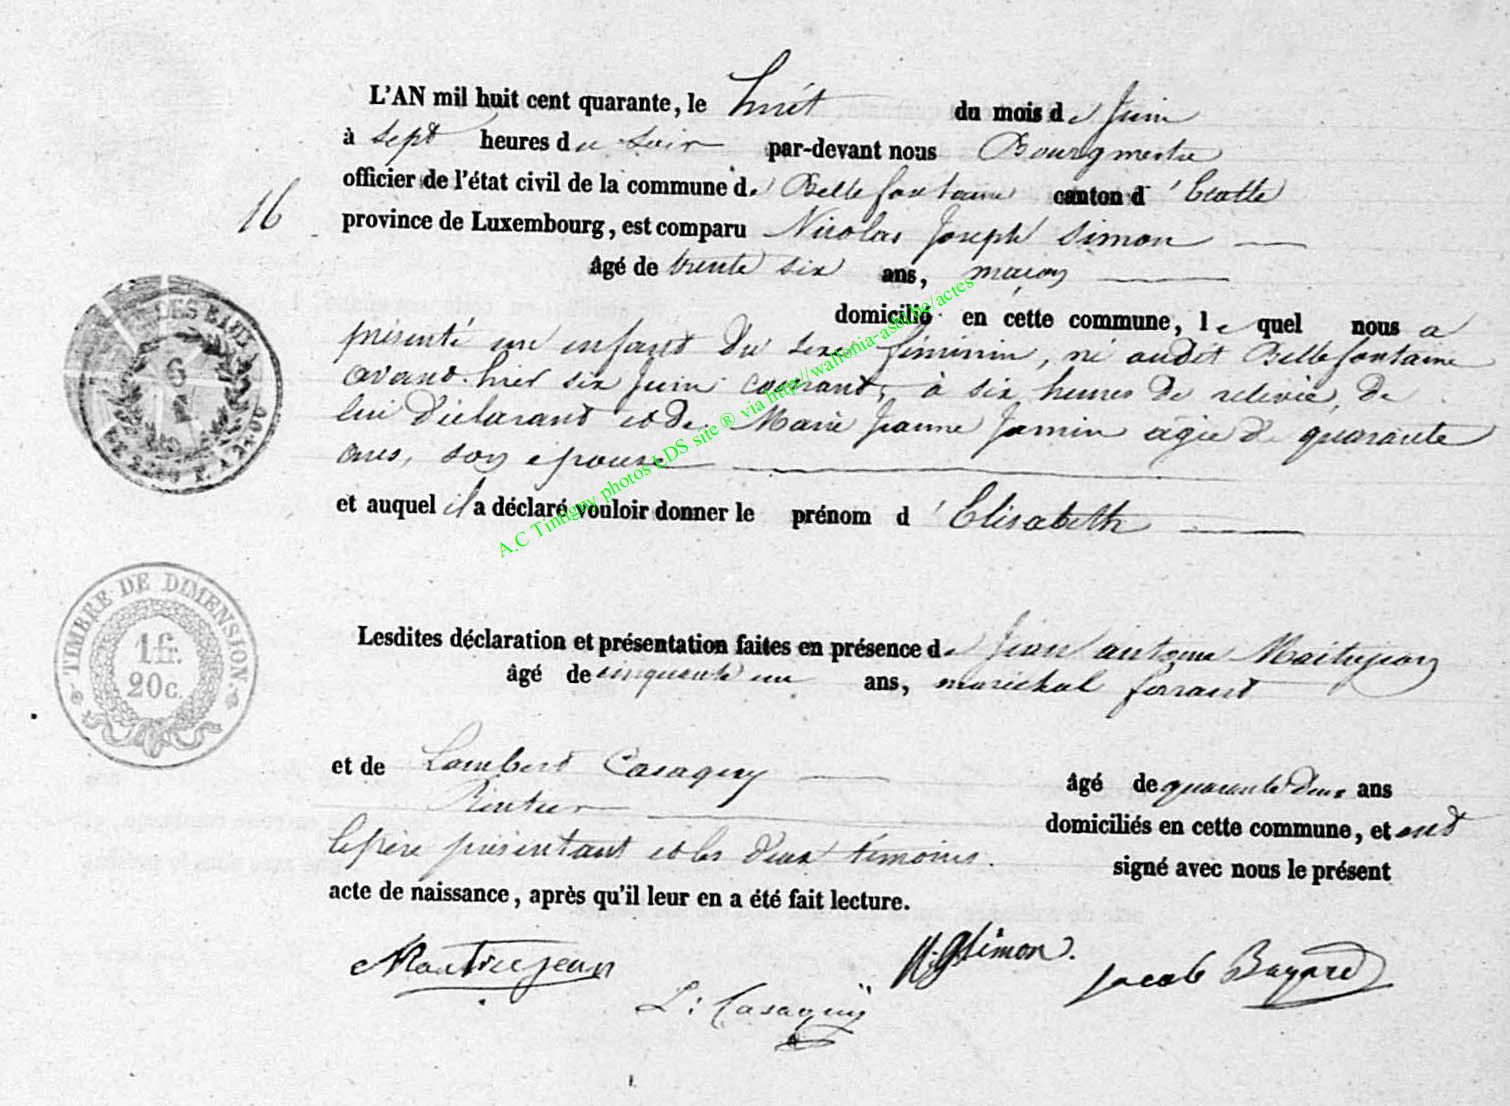 L'AN mil huit cent quarante, le huit du mois de Juin
à sept heures du soir par-devant nous Bourgmestre
officier de l'état civil de la commune de Bellefontaine canton d'Etalle
16
province de Luxembourg, est comparu Nicolas Joseph Simon
âgé de trente six ans, maçon
domicilié en cette commune, lequel nous a
présenté un enfant du sexe féminin, né audit Bellefontaine
avant-hier six Juin courant, à six heures de relevée, de
lui déclarant et de Marie Jeanne Jamin agée de quarante
ans, son épouse
et auquel il a déclaré vouloir donner le prénom d'Elisabeth
A.C Tintigny photos LDS site ® via http//wallonia-asbl.be/actes
DES EAUX
6
TIMBRE DE DIMENSION
1 fr.
20 c.
Lesdites déclaration et présentation faites en présence de Jean antoine Maitrejean
âgé de cinquante un ans, maréchal ferrant
et de Lambert Casaquy âgé de quarante deux ans
Rentier
domiciliés en cette commune, et ont
le père présentant et les deux témoins. signé avec nous le présent
acte de naissance, après qu'il leur en a été fait lecture.
Maitrejean
N:J Simon.
L: Casaquy
Jacob Bayard